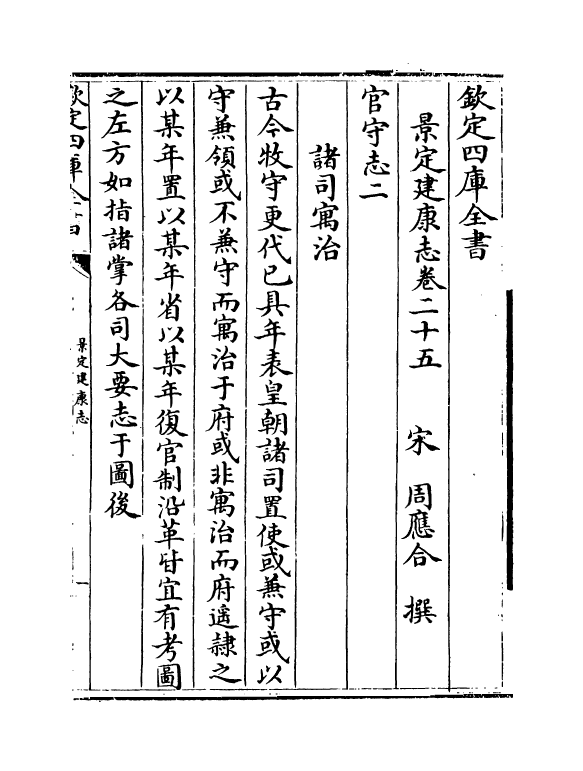 欽定四庫全書
景定建康志卷二十五　宋　周應合　撰
官守志二
諸司寓治
古今牧守更代已具年表皇朝諸司置使或兼守或以
守兼領或不兼守而寓治于府或非寓治而府遥隷之
以某年置以某年省以某年復官制沿革皆宜有考圖
之左方如指諸掌各司大要志于圖後
欽定四庫全書
景定建康志
一